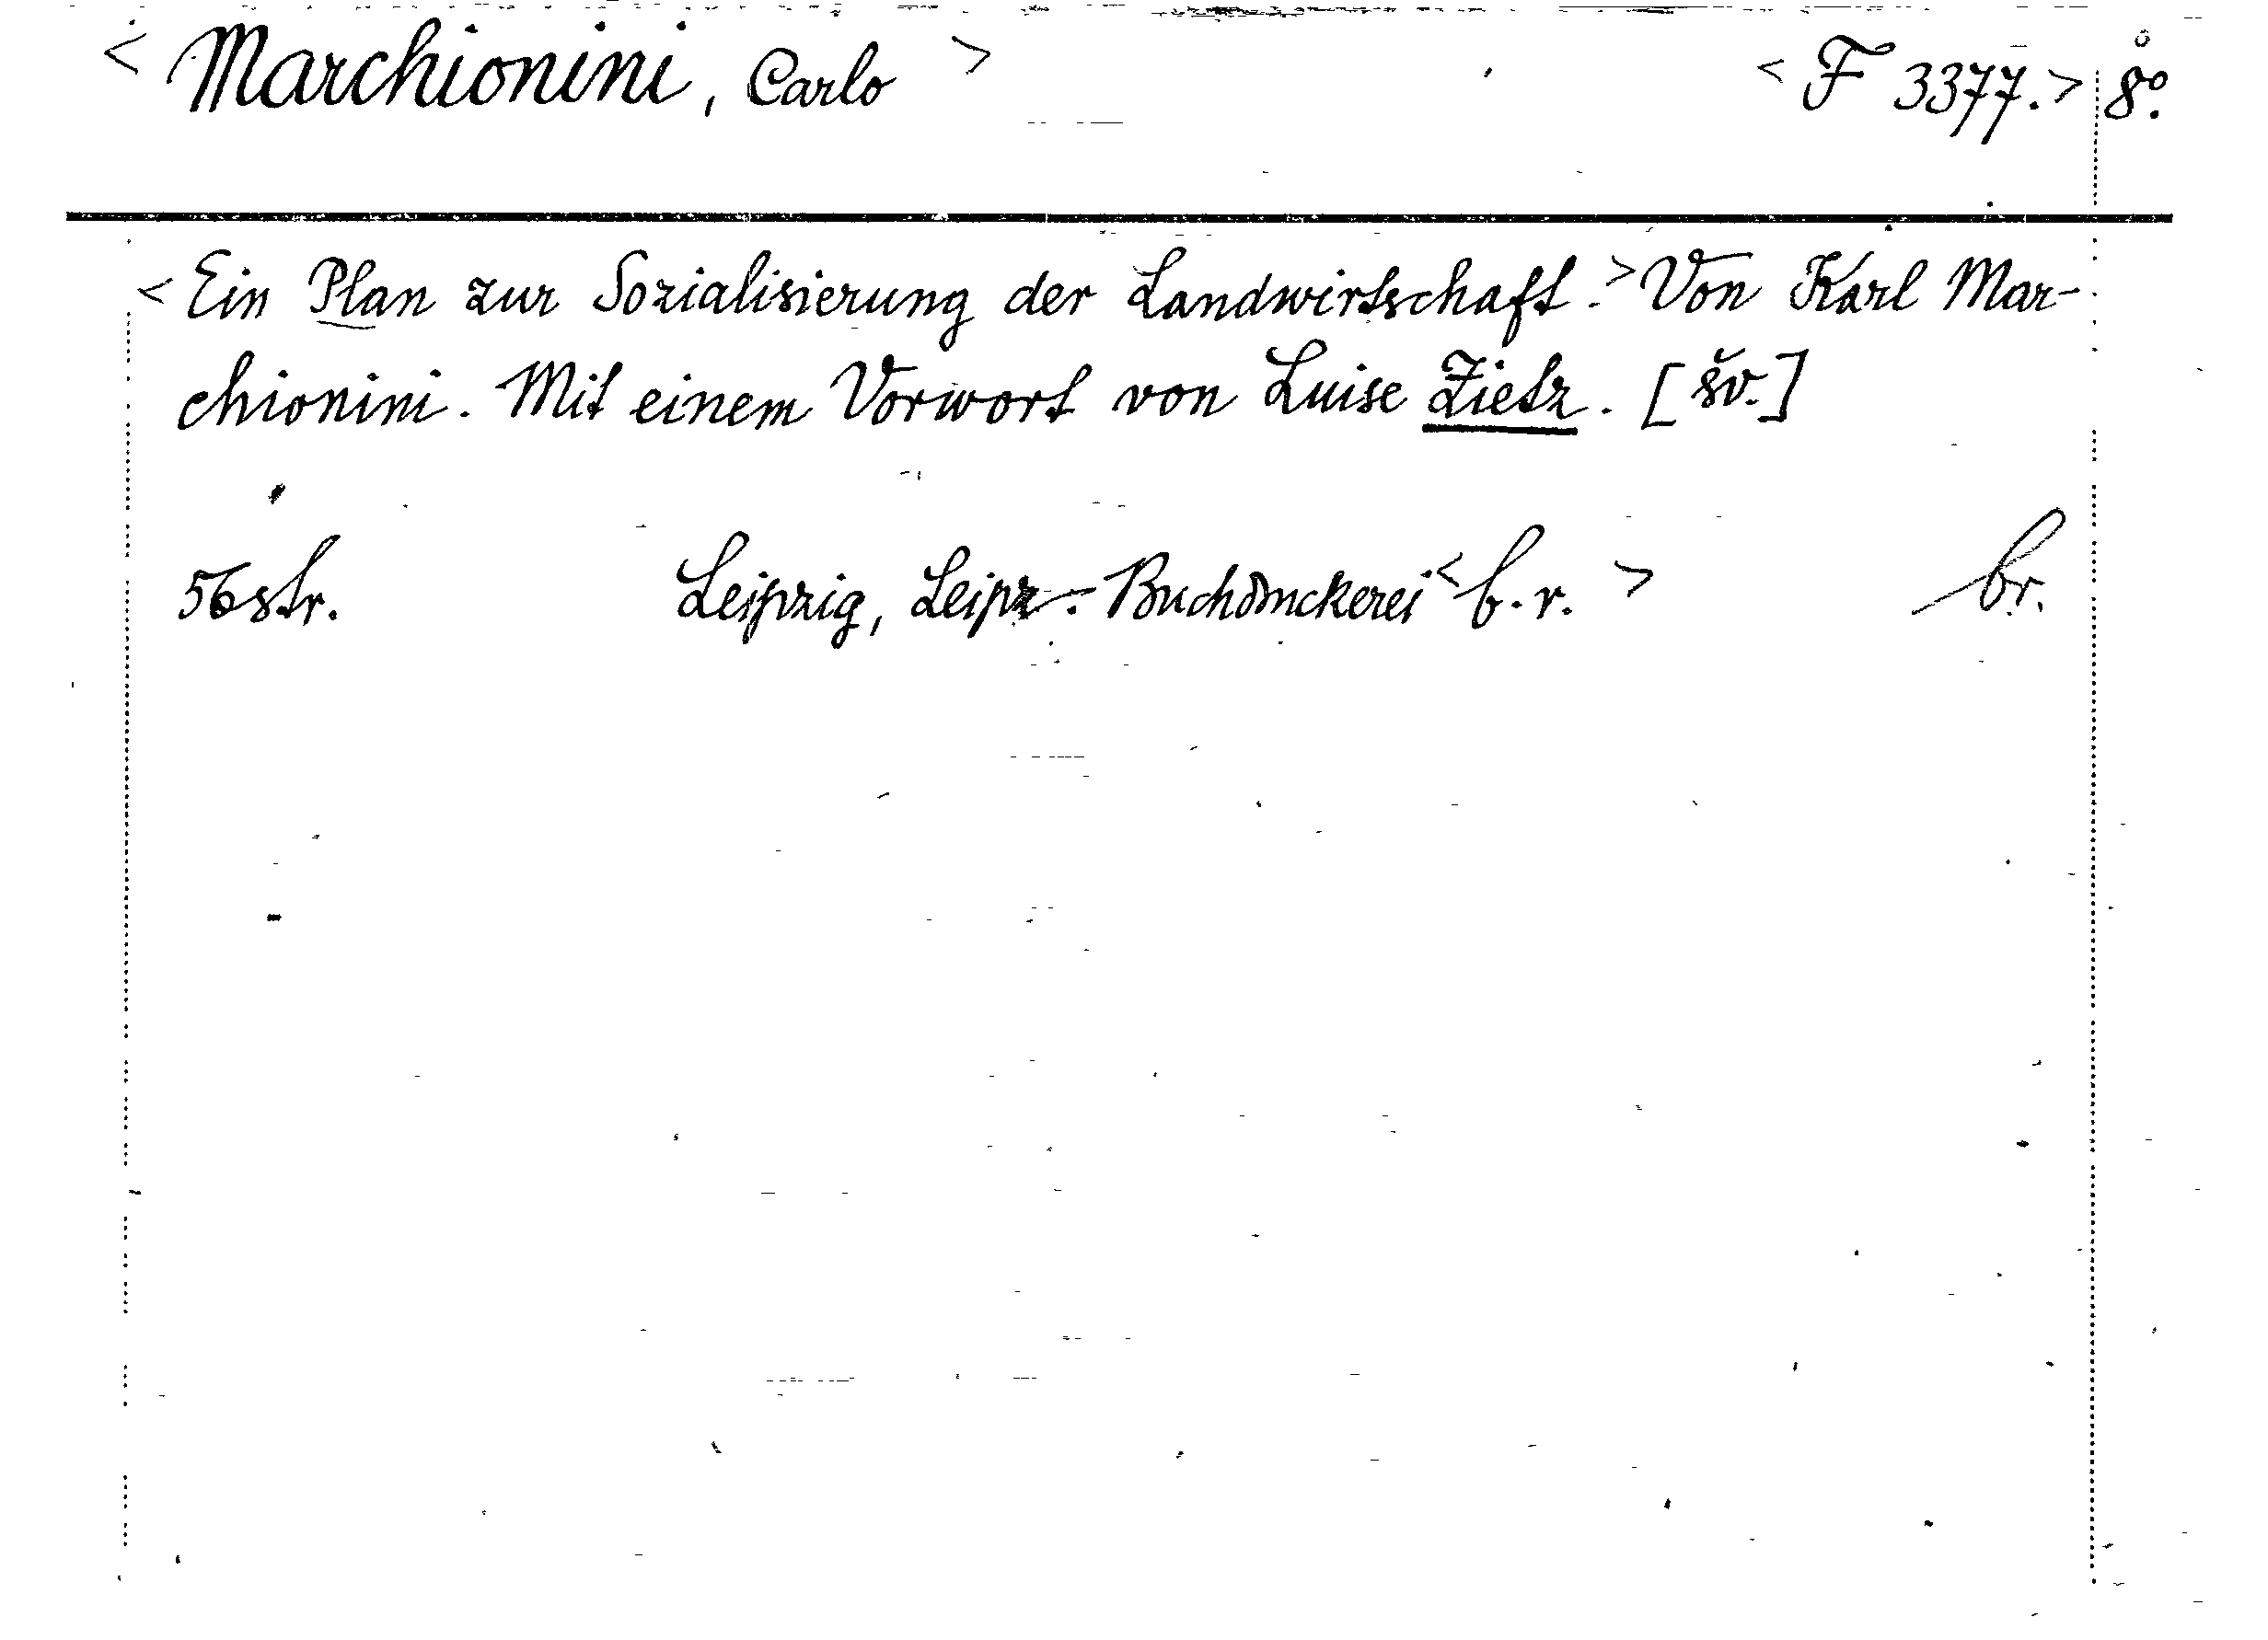 < Marchionini, Carlo > < F 3377. > 8º.
< Ein Plan zur Sozialisierung der Landwirtschaft. > Von Karl Mar-
chionini. Mit einem Vorwort von Luise Zietz. [šv.]
56 str. Leipzig, Leipz. Buchdruckerei < b. r. > br.